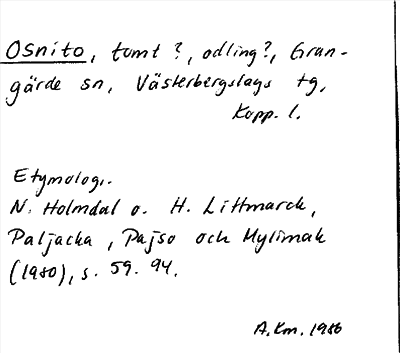 Osnito, tomt?, odling?, Gran-
gärde sn, Västerbergslags tg,
Kopp. l.
Etymologi.
N. Holmdal o. H. Littmarck,
Paljacka, Pajso och Mylimak
(1980), s. 59. 94.
A.Km. 1986